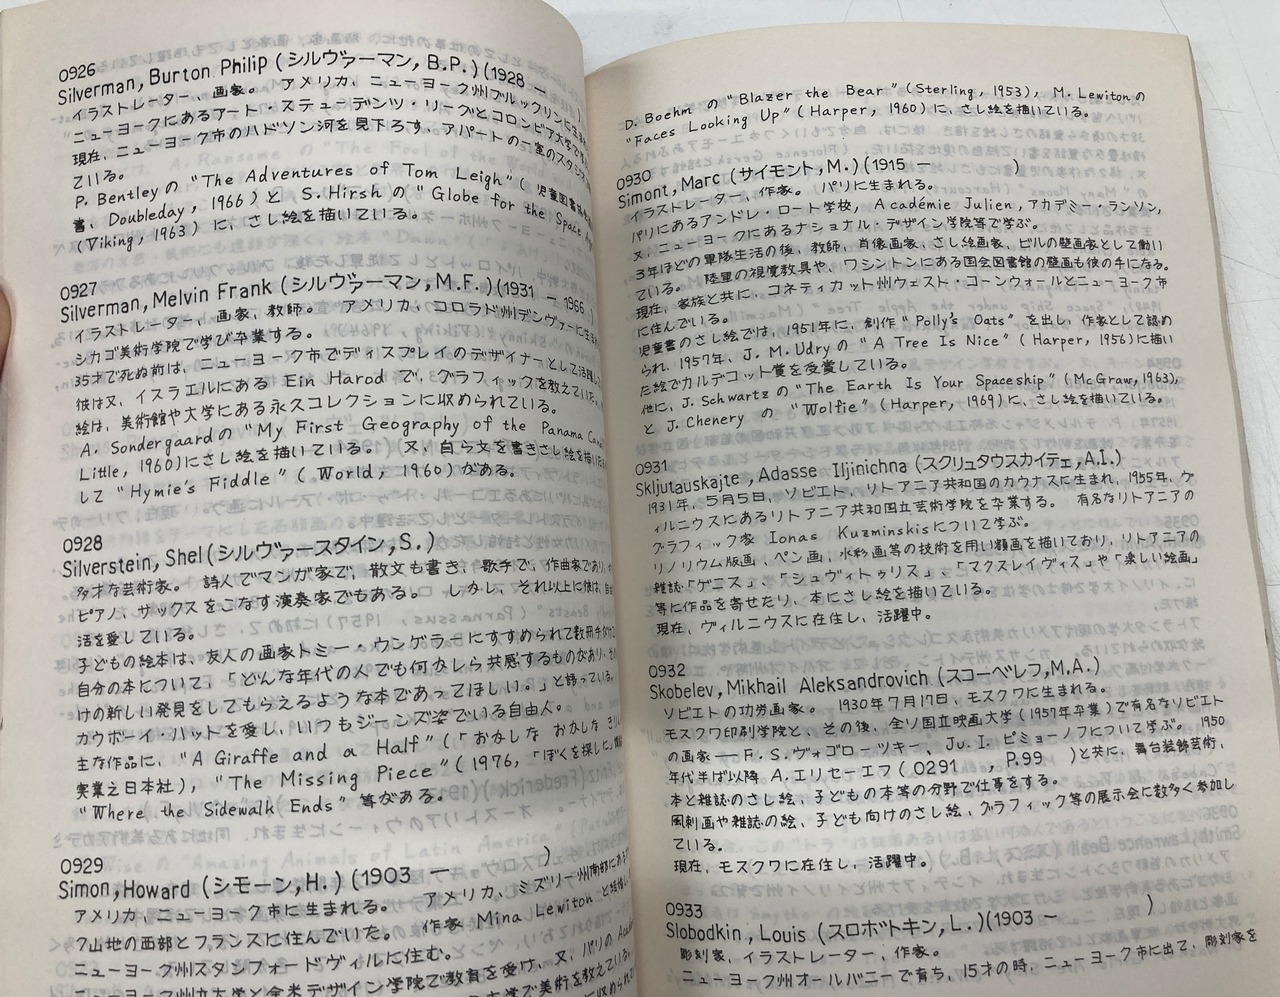 0926
Silverman, Burton Philip (シルヴァーマン, B.P.) (1928 —
イラストレーター、画家。 アメリカ、ニューヨーク州ブルックリンに生まれ
ニューヨークにあるアート・ステューデンツ・リーグとコロンビア大学で学
現在、ニューヨーク市のハドソン河を見下ろす、アパートの一室のスタジオ
ている。
P. Bentley の "The Adventures of Tom Leigh" (児童図書
書, Doubleday, 1966) と S. Hirsh の "Globe for the Space Age"
(Viking, 1963) に、さし絵を描いている。
0927
Silverman, Melvin Frank (シルヴァーマン, M.F.) (1931 — 1966)
イラストレーター、画家、教師。 アメリカ、コロラド州デンヴァーに生まれ
シカゴ美術学院で学び卒業する。
35才で死ぬ前は、ニューヨーク市でディスプレイのデザイナーとして活躍
彼は又、イスラエルにある Ein Harod で、グラフィックを教えていた。
絵は、美術館や大学にある永久コレクションに収められている。
A. Sondergaard の "My First Geography of the Panama Canal
Little, 1960) にさし絵を描いている。 又、自ら文を書きさし絵を描いた
して "Hymie's Fiddle" (World, 1960) がある。
0928
Silverstein, Shel (シルヴァースタイン, S.)
多才な芸術家。 詩人でマンガ家で、散文も書き、歌手で、作曲家であり、
ピアノ、サックスをこなす演奏家でもある。 しかし、それ以上に彼は、自由
活を愛している。
子どもの絵本は、友人の画家トミー・ウンゲラーにすすめられて数冊手がけ
自分の本について、「どんな年代の人でも何かしら共感するものがあり、
けの新しい発見をしてもらえるような本であってほしい。」と語っている。
カウボーイ・ハットを愛し、いつもジーンズ姿でいる自由人。
主な作品に、"A Giraffe and a Half" (「おかしな おかしな きりん
実業之日本社)、"The Missing Piece" (1976, 「ぼくを探しに」
"Where the Sidewalk Ends" 等がある。
0929
Simon, Howard (シモーン, H.) (1903 — )
アメリカ、ニューヨーク市に生まれる。 アメリカ、ミズリー州南部にある
ク山地の西部とフランスに住んでいた。 作家 Mina Lewiton と結婚し
ニューヨーク州スタンフォードヴィルに住む。
ニューヨーク州立大学と全米デザイン学院で教育を受け、又、パリの Acad
大学で美術を教えている。
D. Boehm の "Blazer the Bear" (Sterling, 1953)、M. Lewiton の
"Faces Looking Up" (Harper, 1960) に、さし絵を描いている。
0930
Simont, Marc (サイモント, M.) (1915 — )
イラストレーター、作家。 パリに生まれる。
パリにあるアンドレ・ロート学校、Académie Julien、アカデミー・ランソン、
又、ニューヨークにあるナショナル・デザイン学院等で学ぶ。
3年ほどの軍隊生活の後、教師、肖像画家、さし絵画家、ビルの壁画家として働い
ている。 陸軍の視覚教具や、ワシントンにある国会図書館の壁画も彼の手になる。
現在、家族と共に、コネティカット州ウェスト・コーンウォールとニューヨーク市
に住んでいる。
児童書のさし絵では、1951年に、創作 "Polly's Oats" を出し、作家として認め
られ、1957年、J. M. Udry の "A Tree Is Nice" (Harper, 1956) に描い
た絵でカルデコット賞を受賞している。
他に、J. Schwartz の "The Earth Is Your Spaceship" (McGraw, 1963)、
と J. Chenery の "Wolfie" (Harper, 1969) に、さし絵を描いている。
0931
Skljutauskajte, Adasse Iljinichna (スクリュタウスカイテェ, A.I.)
1931年、5月5日、ソビエト、リトアニア共和国のカウナスに生まれ、1955年、ヴ
ィルニウスにあるリトアニア共和国立芸術学院を卒業する。 有名なリトアニアの
グラフィック家 Ionas Kuzminskis について学ぶ。
リノリウム版画、ペン画、水彩画等の技術を用い額画を描いており、リトアニアの
雑誌「ゲニス」、「シュヴィトゥリス」、「マクスレイヴィス」や「楽しい絵画」
等に作品を寄せたり、本にさし絵を描いている。
現在、ヴィルニウスに在住し、活躍中。
0932
Skobelev, Mikhail Aleksandrovich (スコーベレフ, M.A.)
ソビエトの功労画家。 1930年7月17日、モスクワに生まれる。
モスクワ印刷学院と、その後、全ソ国立映画大学 (1957年卒業) で有名なソビエト
の画家 — F. S. ヴォゴローツキー、Ju. I. ピミョーノフについて学ぶ。 1950
年代半ば以降 A. エリセーエフ (0291 , P.99 ) と共に、舞台装飾芸術、
本と雑誌のさし絵、子どもの本等の分野で仕事をする。
風刺画や雑誌の絵、子ども向けのさし絵、グラフィック等の展示会に数多く参加し
ている。
現在、モスクワに在住し、活躍中。
0933
Slobodkin, Louis (スロボトキン, L.) (1903 — )
彫刻家、イラストレーター、作家。
ニューヨーク州オールバニーで育ち、15才の時、ニューヨーク市に出て、彫刻家を